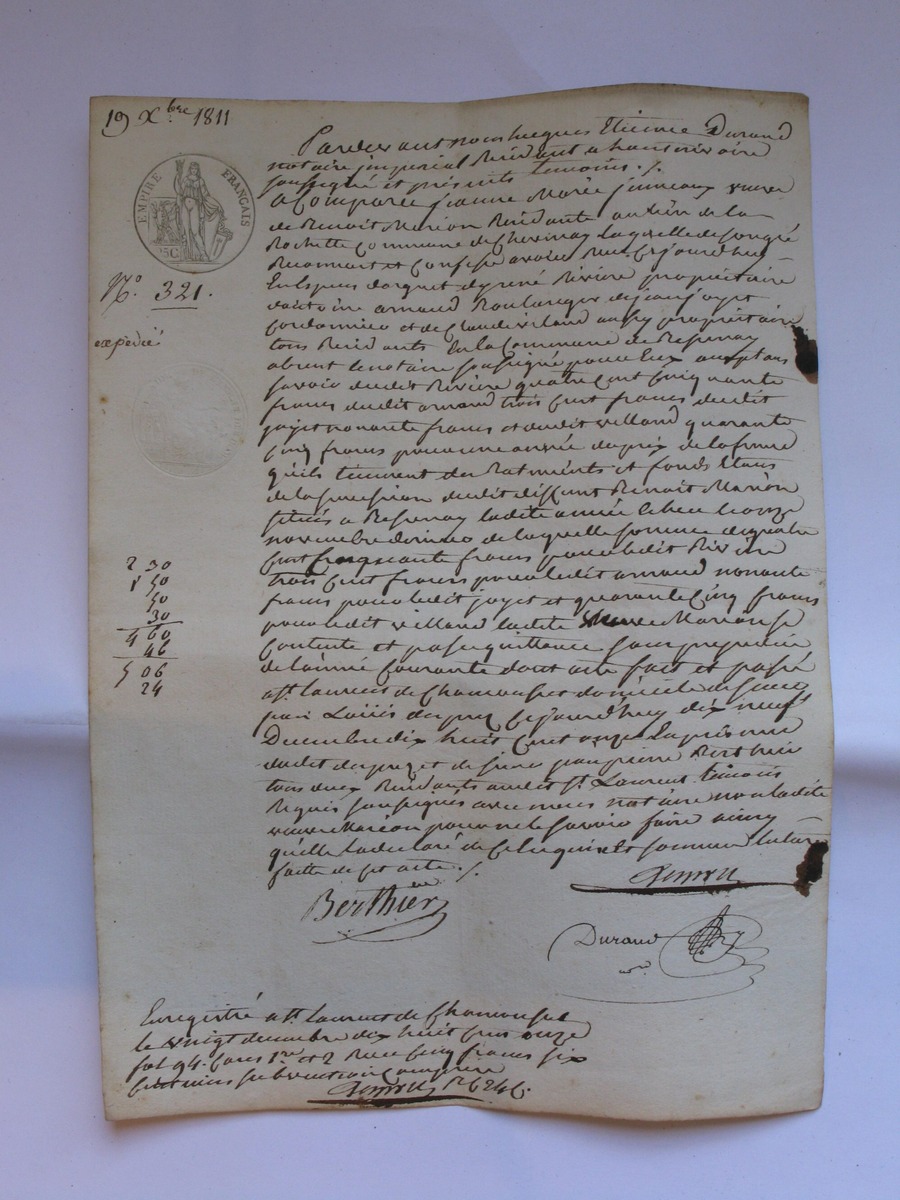 19 Xbre 1811
EMPIRE FRANÇAIS
75C
No. 321.
expédié
Pardevant nous hugues Etienne Durand
notaire jmperial Residant a haute rivoire
soussigné et présents temoins ./.
a Comparée jeanne Marie veuve
de Benoit Marion Residante au lieu de la
Rochette Commune de Chevinay laquelle de son gré
Reconnait et Confesse avoir Recu Cejourdhuy
En Especes dargent de rené Riviere propriétaire
dantoine arnaud Boulanger de jean joyet
Cordonnier et de Claude villand aussy propriétaire
tous Residants En la Commune de Bessenay
absent le notaire soussigné pour Eux acceptans
savoir dudit Riviere quatre Cent Cinquante
francs dudit arnaud trois Cent francs dudit
joyet nonante francs et dudit villand quarante
Cinq francs pour une année du prix de la ferme
qu'ils tiennent des Batiments et fonds Etans
de la succession dudit deffunt Benoit Marion
situés a Bessenay ladite année Echue le onze
novembre dernier de laquelle somme de quatre
Cent Cinquante francs pour ledit Riviere
trois Cent francs pour ledit arnaud nonante
francs pour ledit joyet et quarante Cinq francs
pour ledit villand ladite veuve Marion se
Contente et passe quittance sans prejudice
de l'année Courante dont acte fait et passé
a St. Laurent de Chamousset domicile de
Louis Cejourdhuy dix neuf
Decembre dix huit Cent onze En présence
dudit et de sieur jean pierre Berthier
tous deux Residants audit St. Laurent temoins
Requis soussignés avec nous notaire non ladite
veuve Marion pour ne le savoir faire ainsy
qu'elle la déclaré de Ce Enquise Et sommée lecture
faitte de cet acte ./.
Berthier
Durand
2 30
1 50
50
30
4 60
46
5 06
24
Enregistré a St. Laurent de Chamousset
le vingt decembre dix huit Cent onze
fol 94. Cases 1re et 2 Recu Cinq francs six
Centimes subvention Comprise